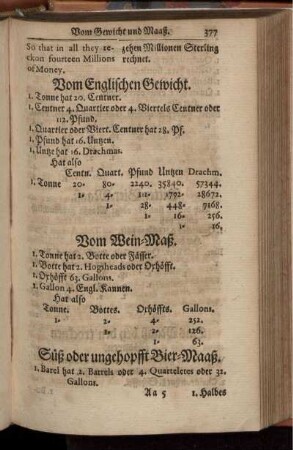 Vom Gewicht und Maaß. 377
So that in all they re-
ckon fourteen Millions
of Money.
zehen Millionen Sterling
rechnet.
Vom Englischen Gewicht.
1. Tonne hat 20. Centner.
1. Centner 4. Quartier oder 4. Viertels Centner oder
112. Pfund.
1. Quartier oder Viert. Centner hat 28. Pf.
1. Pfund hat 16. Untzen.
1. Untze hat 16. Drachmas.
Hat also
Centn. Quart. Pfund Untzen Drachm.
1. Tonne 20- 80- 2240. 35840. 57344.
1- 4- 112- 1792- 28672.
1- 28- 448- 7168.
1- 16- 256.
1- 16.
Vom Wein-Maß.
1. Tonne hat 2. Botte oder Fässer.
1. Botte hat 2. Hogsheads oder Orhöfft.
1. Orhöfft 63. Gallons.
1. Gallon 4. Engl. Kannen.
Hat also
Tonne. Bottes. Orhöffts. Gallons.
1- 2- 4- 252.
1- 2- 126.
1- 63.
Süß oder ungehopfft Bier-Maaß.
1. Barel hat 2. Barrels oder 4. Quarteletes oder 32.
Gallons.
Aa 5 1. Halbes